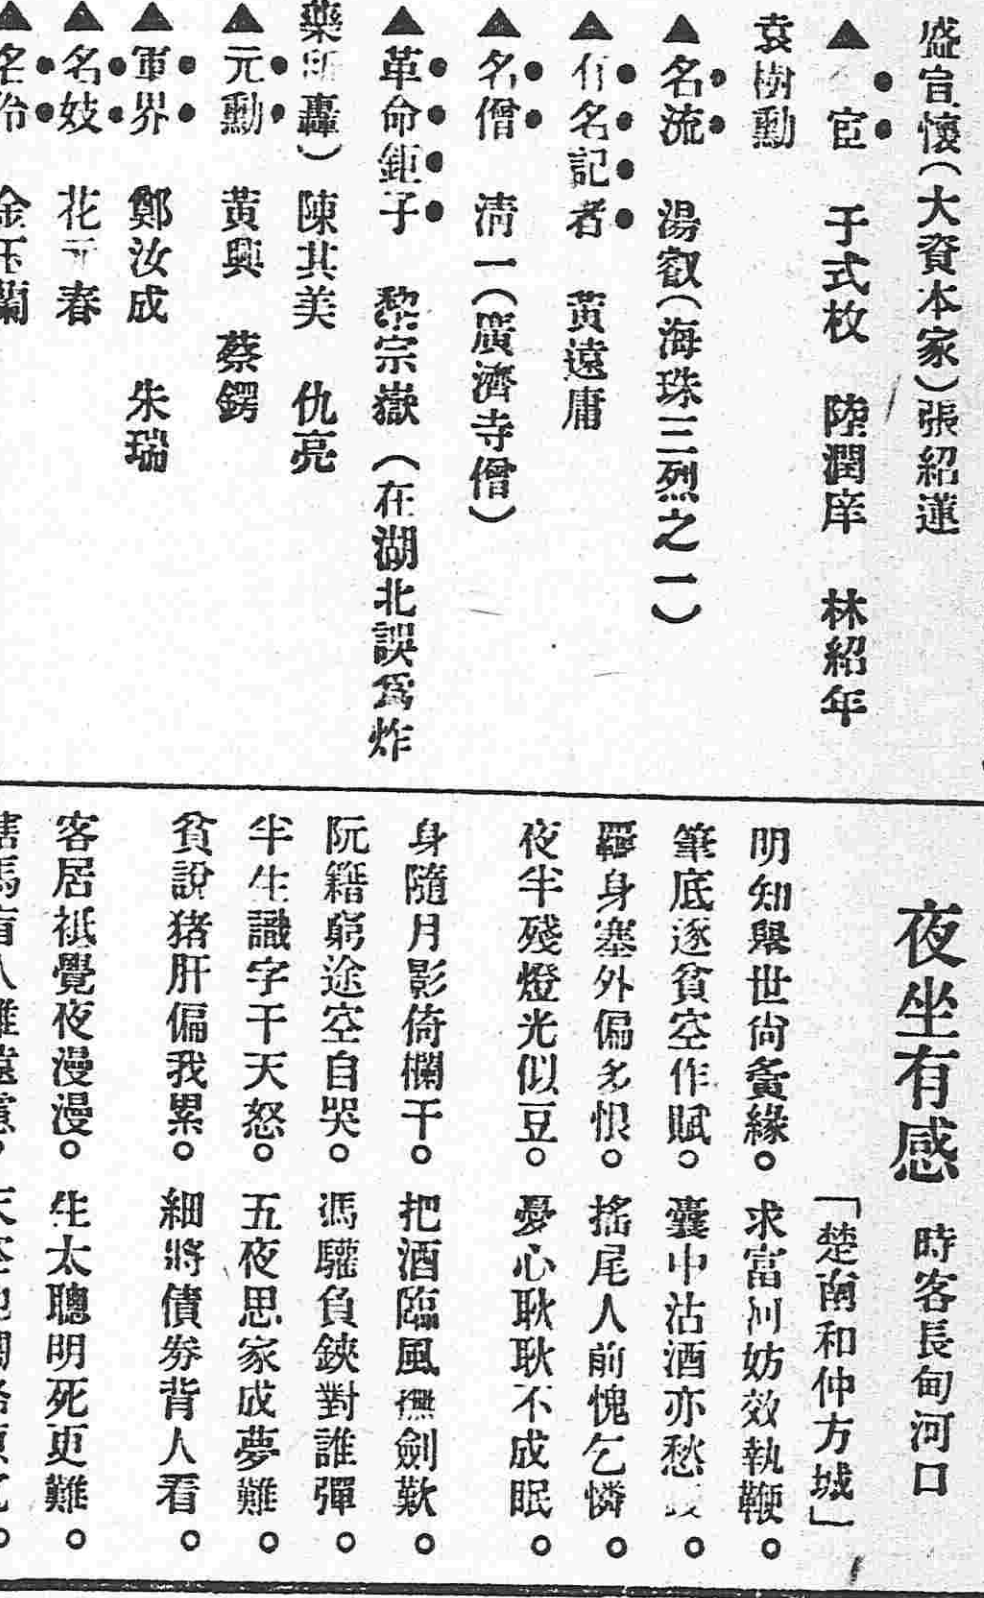 盛宣懷(大資本家)張紹蓮
▲宦 于式枚 陸潤庠 林紹年
袁樹勳
▲名流 湯叡(海珠三烈之一)
▲有名記者 黃遠庸
▲名僧 淸一(廣濟寺僧)
▲革命鉅子 黎宗嶽 (在湖北誤爲炸
藥所轟) 陳其美 仇亮
▲元勳 黃興 蔡鍔
▲軍界 鄭汝成 朱瑞
▲名妓 花元春
▲名伶 金玉蘭
夜坐有感 時客長甸河口
「楚南和仲方城」
明知舉世尙夤緣。求富何妨效執鞭。
筆底逐貧空作賦。囊中沽酒亦愁。
羈身塞外偏多恨。搖尾人前愧乞憐。
夜半殘燈光似豆。憂心耿耿不成眠。
身隨月影倚欄干。把酒臨風撫劍歎。
阮籍窮途空自哭。馮驩負鋏對誰彈。
半生識字干天怒。五夜思家成夢難。
貧說猪肝偏我累。細將債劵背人看。
客居祇覺夜漫漫。生太聰明死更難。